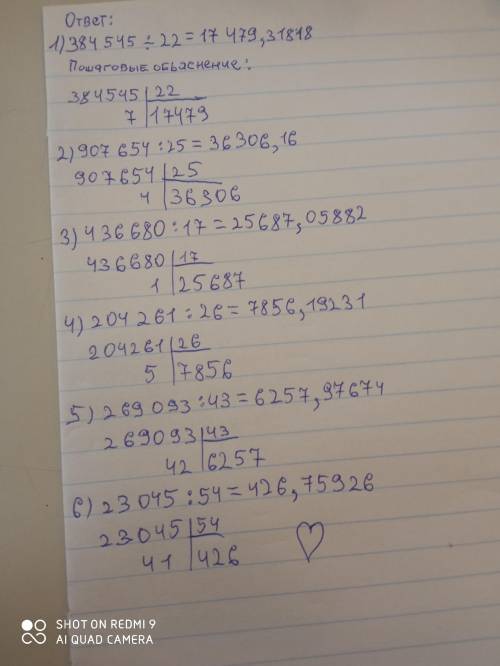 Ответ:
1) 384 545 ÷ 22 = 17 479,31818
Пошаговые обьаснение:
384545 | 22
7 | 17479
2) 907 654 : 25 = 36306,16
907654 | 25
4 | 36306
3) 436 680 : 17 = 25687,05882
436680 | 17
1 | 25687
4) 204 261 : 26 = 7856,19231
204261 | 26
5 | 7856
5) 269 093 : 43 = 6257,97674
269093 | 43
42 | 6257
6) 23 045 : 54 = 426,75926
23045 | 54
41 | 426
SHOT ON REDMI 9
AI QUAD CAMERA